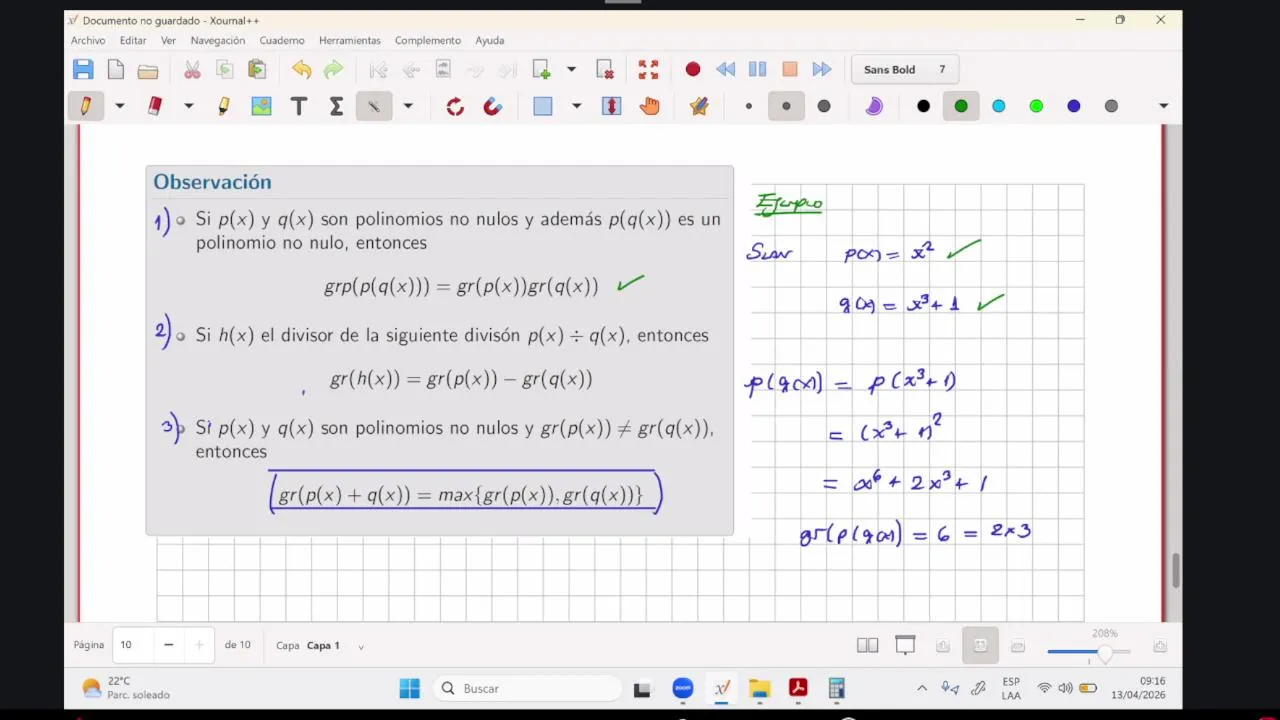 Documento no guardado - Xournal++
Archivo Editar Ver Navegación Cuaderno Herramientas Complemento Ayuda
Sans Bold 7
Observación
1) Si p(x) y q(x) son polinomios no nulos y además p(q(x)) es un
polinomio no nulo, entonces
grp(p(q(x))) = gr(p(x))gr(q(x)) ✓
2) Si h(x) el divisor de la siguiente divisón p(x) ÷ q(x), entonces
gr(h(x)) = gr(p(x)) − gr(q(x))
3) Si p(x) y q(x) son polinomios no nulos y gr(p(x)) ≠ gr(q(x)),
entonces
gr(p(x) + q(x)) = max{gr(p(x)), gr(q(x))}
Ejemplo
Sean p(x) = x² ✓
q(x) = x³ + 1 ✓
p(q(x)) = p(x³+1)
= (x³+1)²
= x⁶ + 2x³ + 1
gr(p(q(x)) = 6 = 2×3
Página 10 de 10 Capa Capa 1
208%
22°C
Parc. soleado
Buscar
zoom
ESP
LAA
09:16
13/04/2026